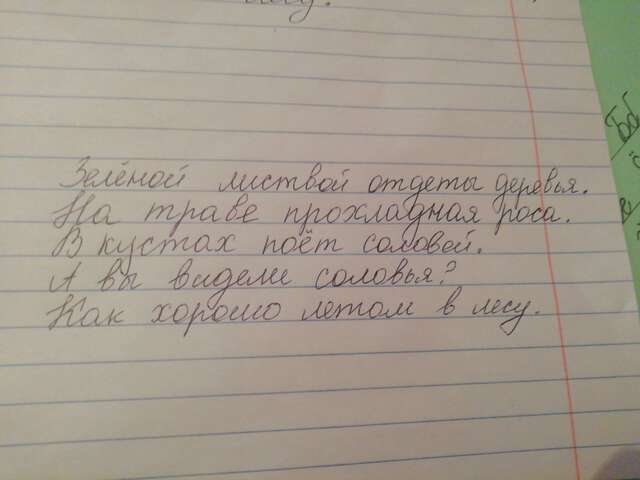 лесу.
Бб
Зелёной листвой отдеты деревья.
На траве прохладная роса.
В кустах поёт соловей.
А вы видели соловья?
Как хорошо летом в лесу.